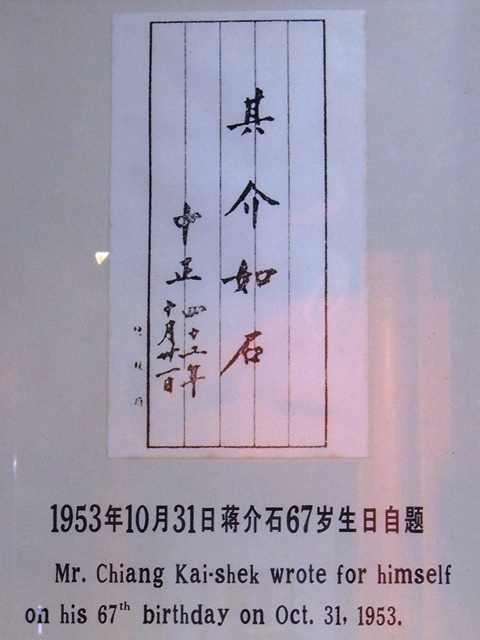 其介如石
中正
四十二年
十月卅一日
1953年10月31日蒋介石67岁生日自题
Mr. Chiang Kai-shek wrote for himself
on his 67th birthday on Oct. 31, 1953.